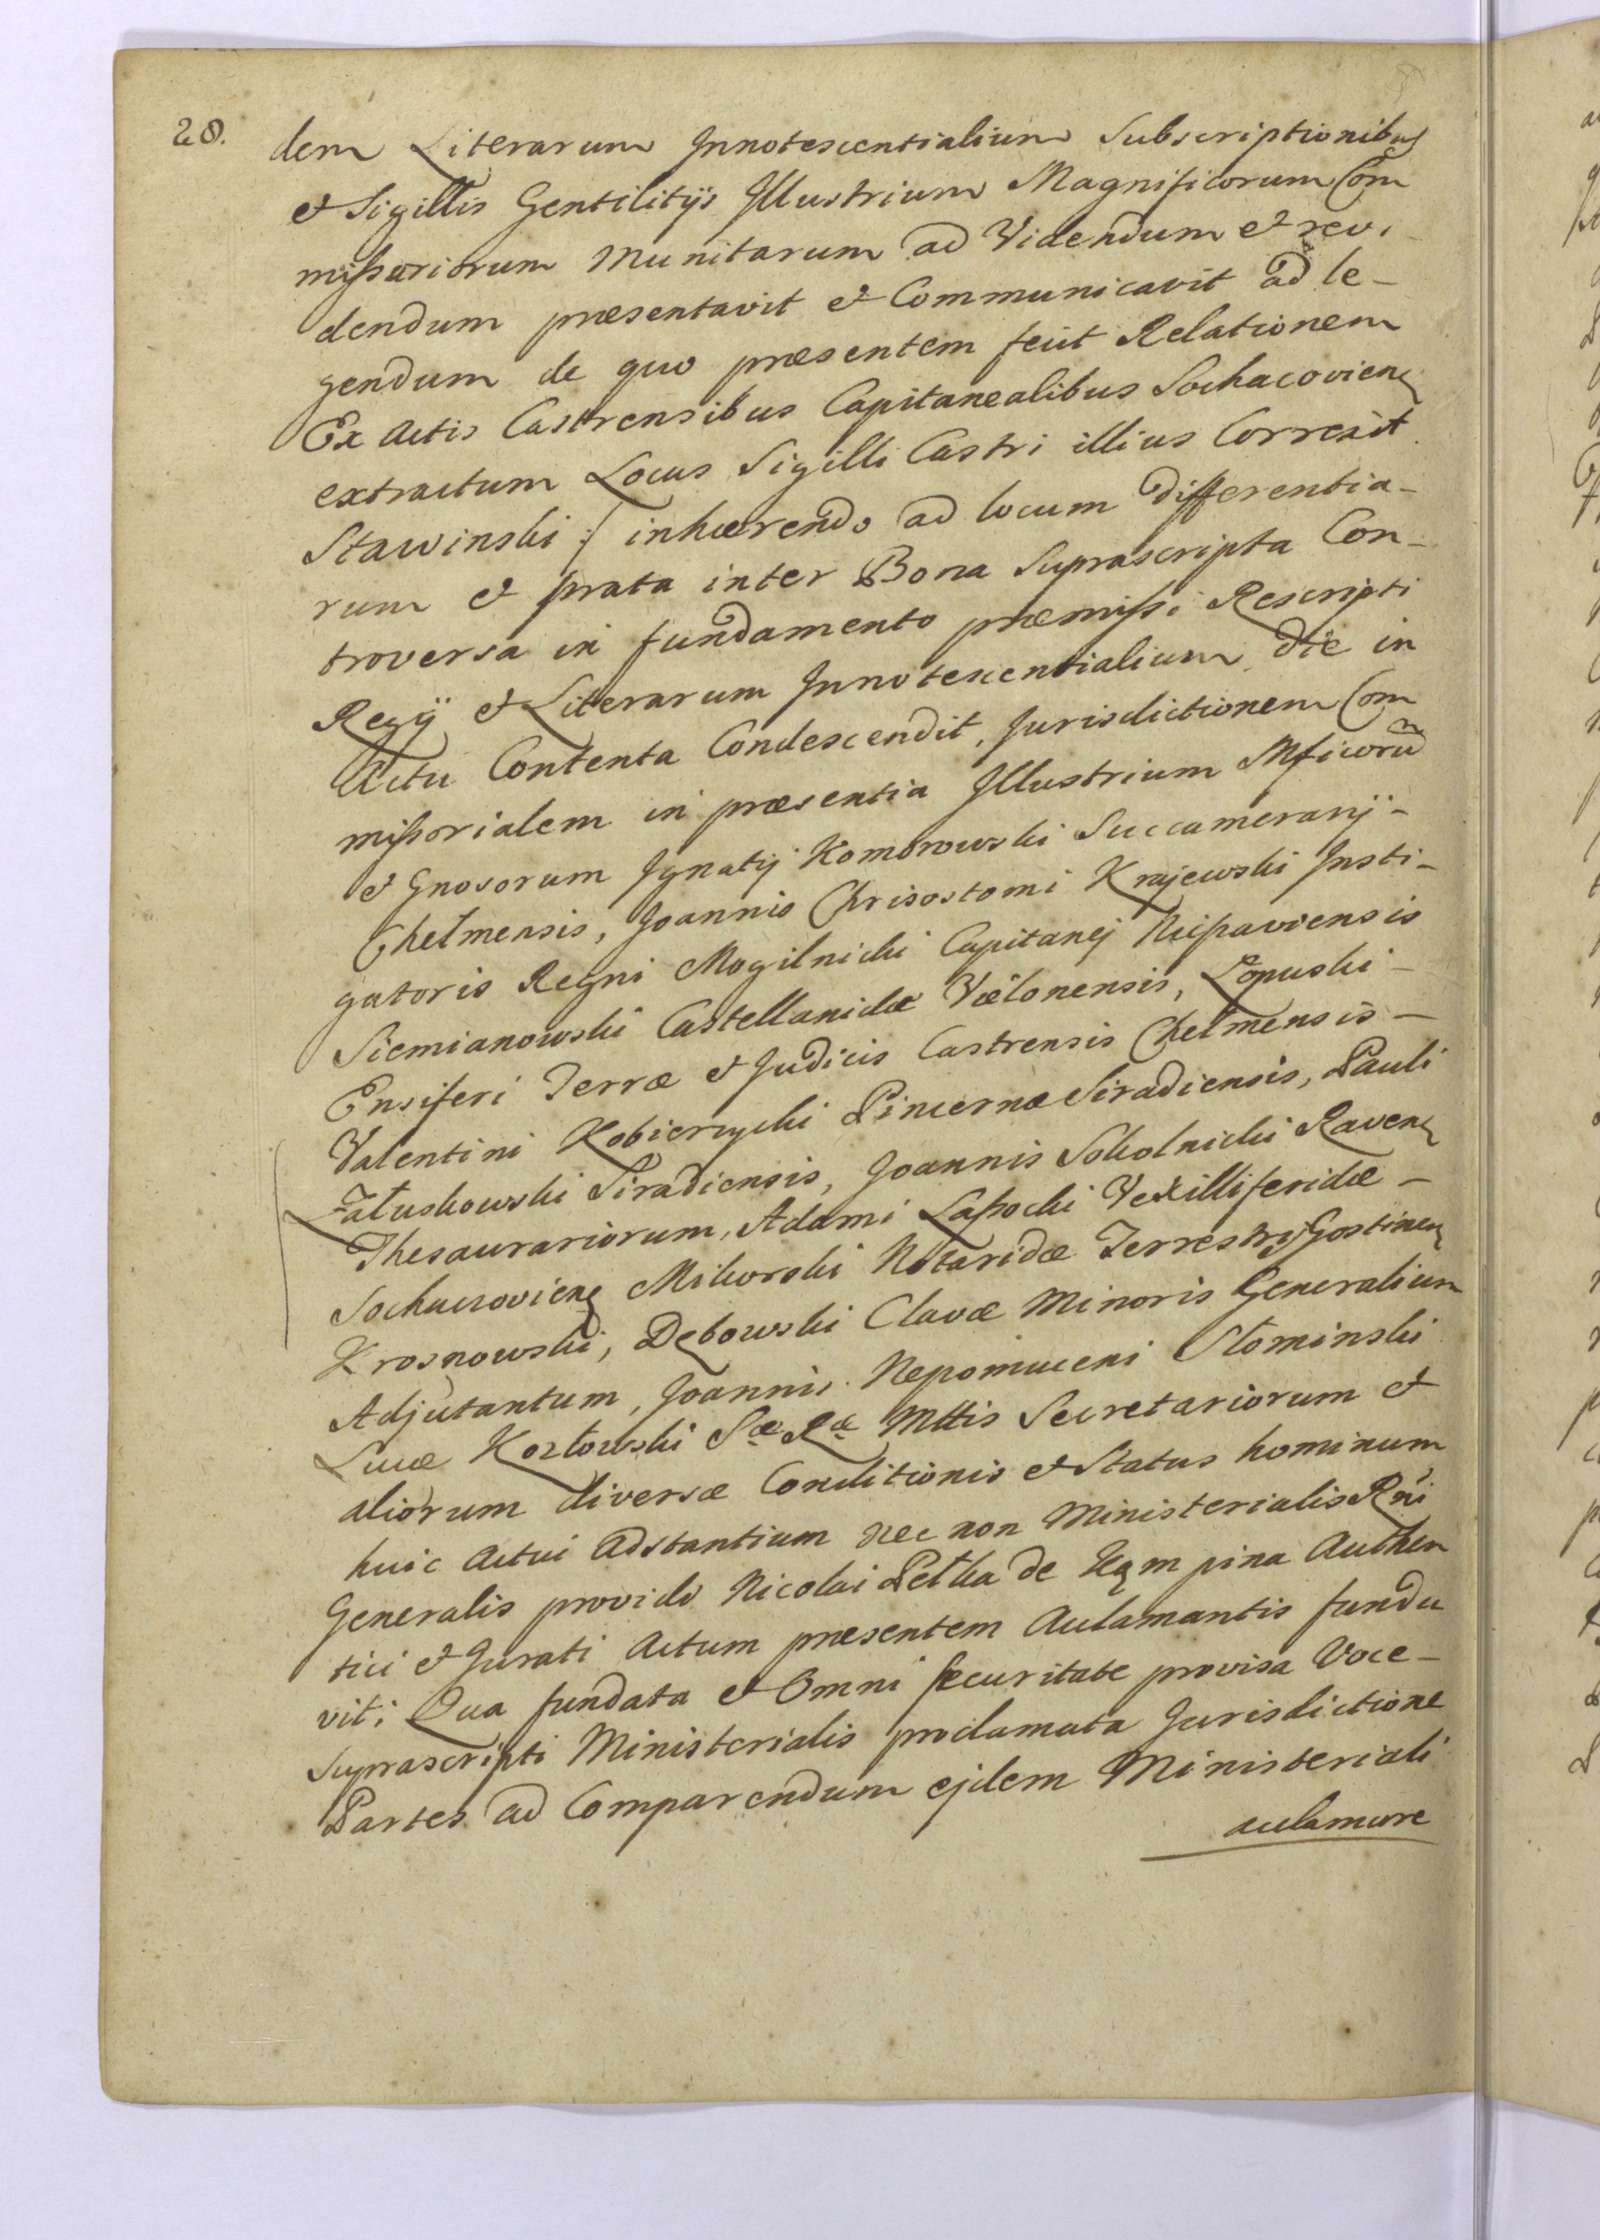 28.
dem Literarum Innotescentialium Subscriptionibus
et Sigillis Gentilitijs Illustrium Magnificorum Com
missoriorum Munitarum ad Videndum et revi
dendum præsentavit et Communicavit ad le-
gendum de quo præsentem fecit Relationem
Ex Actis Castrensibus Capitanealibus Sochacoviens
extractum Locus Sigilli Castri illius Correxit
Stawinski :/ inhærendo ad locum differentia-
rum et prata inter Bona Suprascripta Con-
troversa in fundamento præmissi Rescripti
Regij et Literarum Innotescentialium die in
Actu Contenta Condescendit, Jurisdictionem Com
missorialem in præsentia Illustrium Mficorũ
et Gnosorum Ignatij Komorowski Succamerarij-
Chełmensis, Joannis Chrisostomi Krajewski Insti-
gatoris Regni Mogilnicki Capitanej
Siemianowski Castellanidæ Vielonensis, Łopuski-
Ensiferi Terræ et Judicis Castrensis Chełmensis-
Valentini Kobierzycki Pincernæ Siradiensis, Pauli
Załuskowski Siradiensis, Joannis Sokolnicki Ravens
Thesaurariorum, Adami Lassocki Vexilliferidæ-
Sochacoviens Mikorski Notaridæ Terrestrij Gostinens
Krosnowski, Dębowski Clavæ Minoris Generalium
Adjutantum, Joannis Nepomuceni Słominski
Lucæ Kozłowski Sæ Ræ Mttis Secretariorum et
aliorum diversæ Conditionis et Status hominum
huic Actui Adstantium nec non Ministerialis Rñi
Generalis providi Nicolai Pełka de Kąmpina Authen
tici et Jurati Actum præsentem Aclamantis funda
vit; Qua fundata et Omni securitate provisa Voce-
Suprascripti Ministerialis proclamata Jurisdictione
Partes ad Comparendum ejdem Ministeriali
aclamare